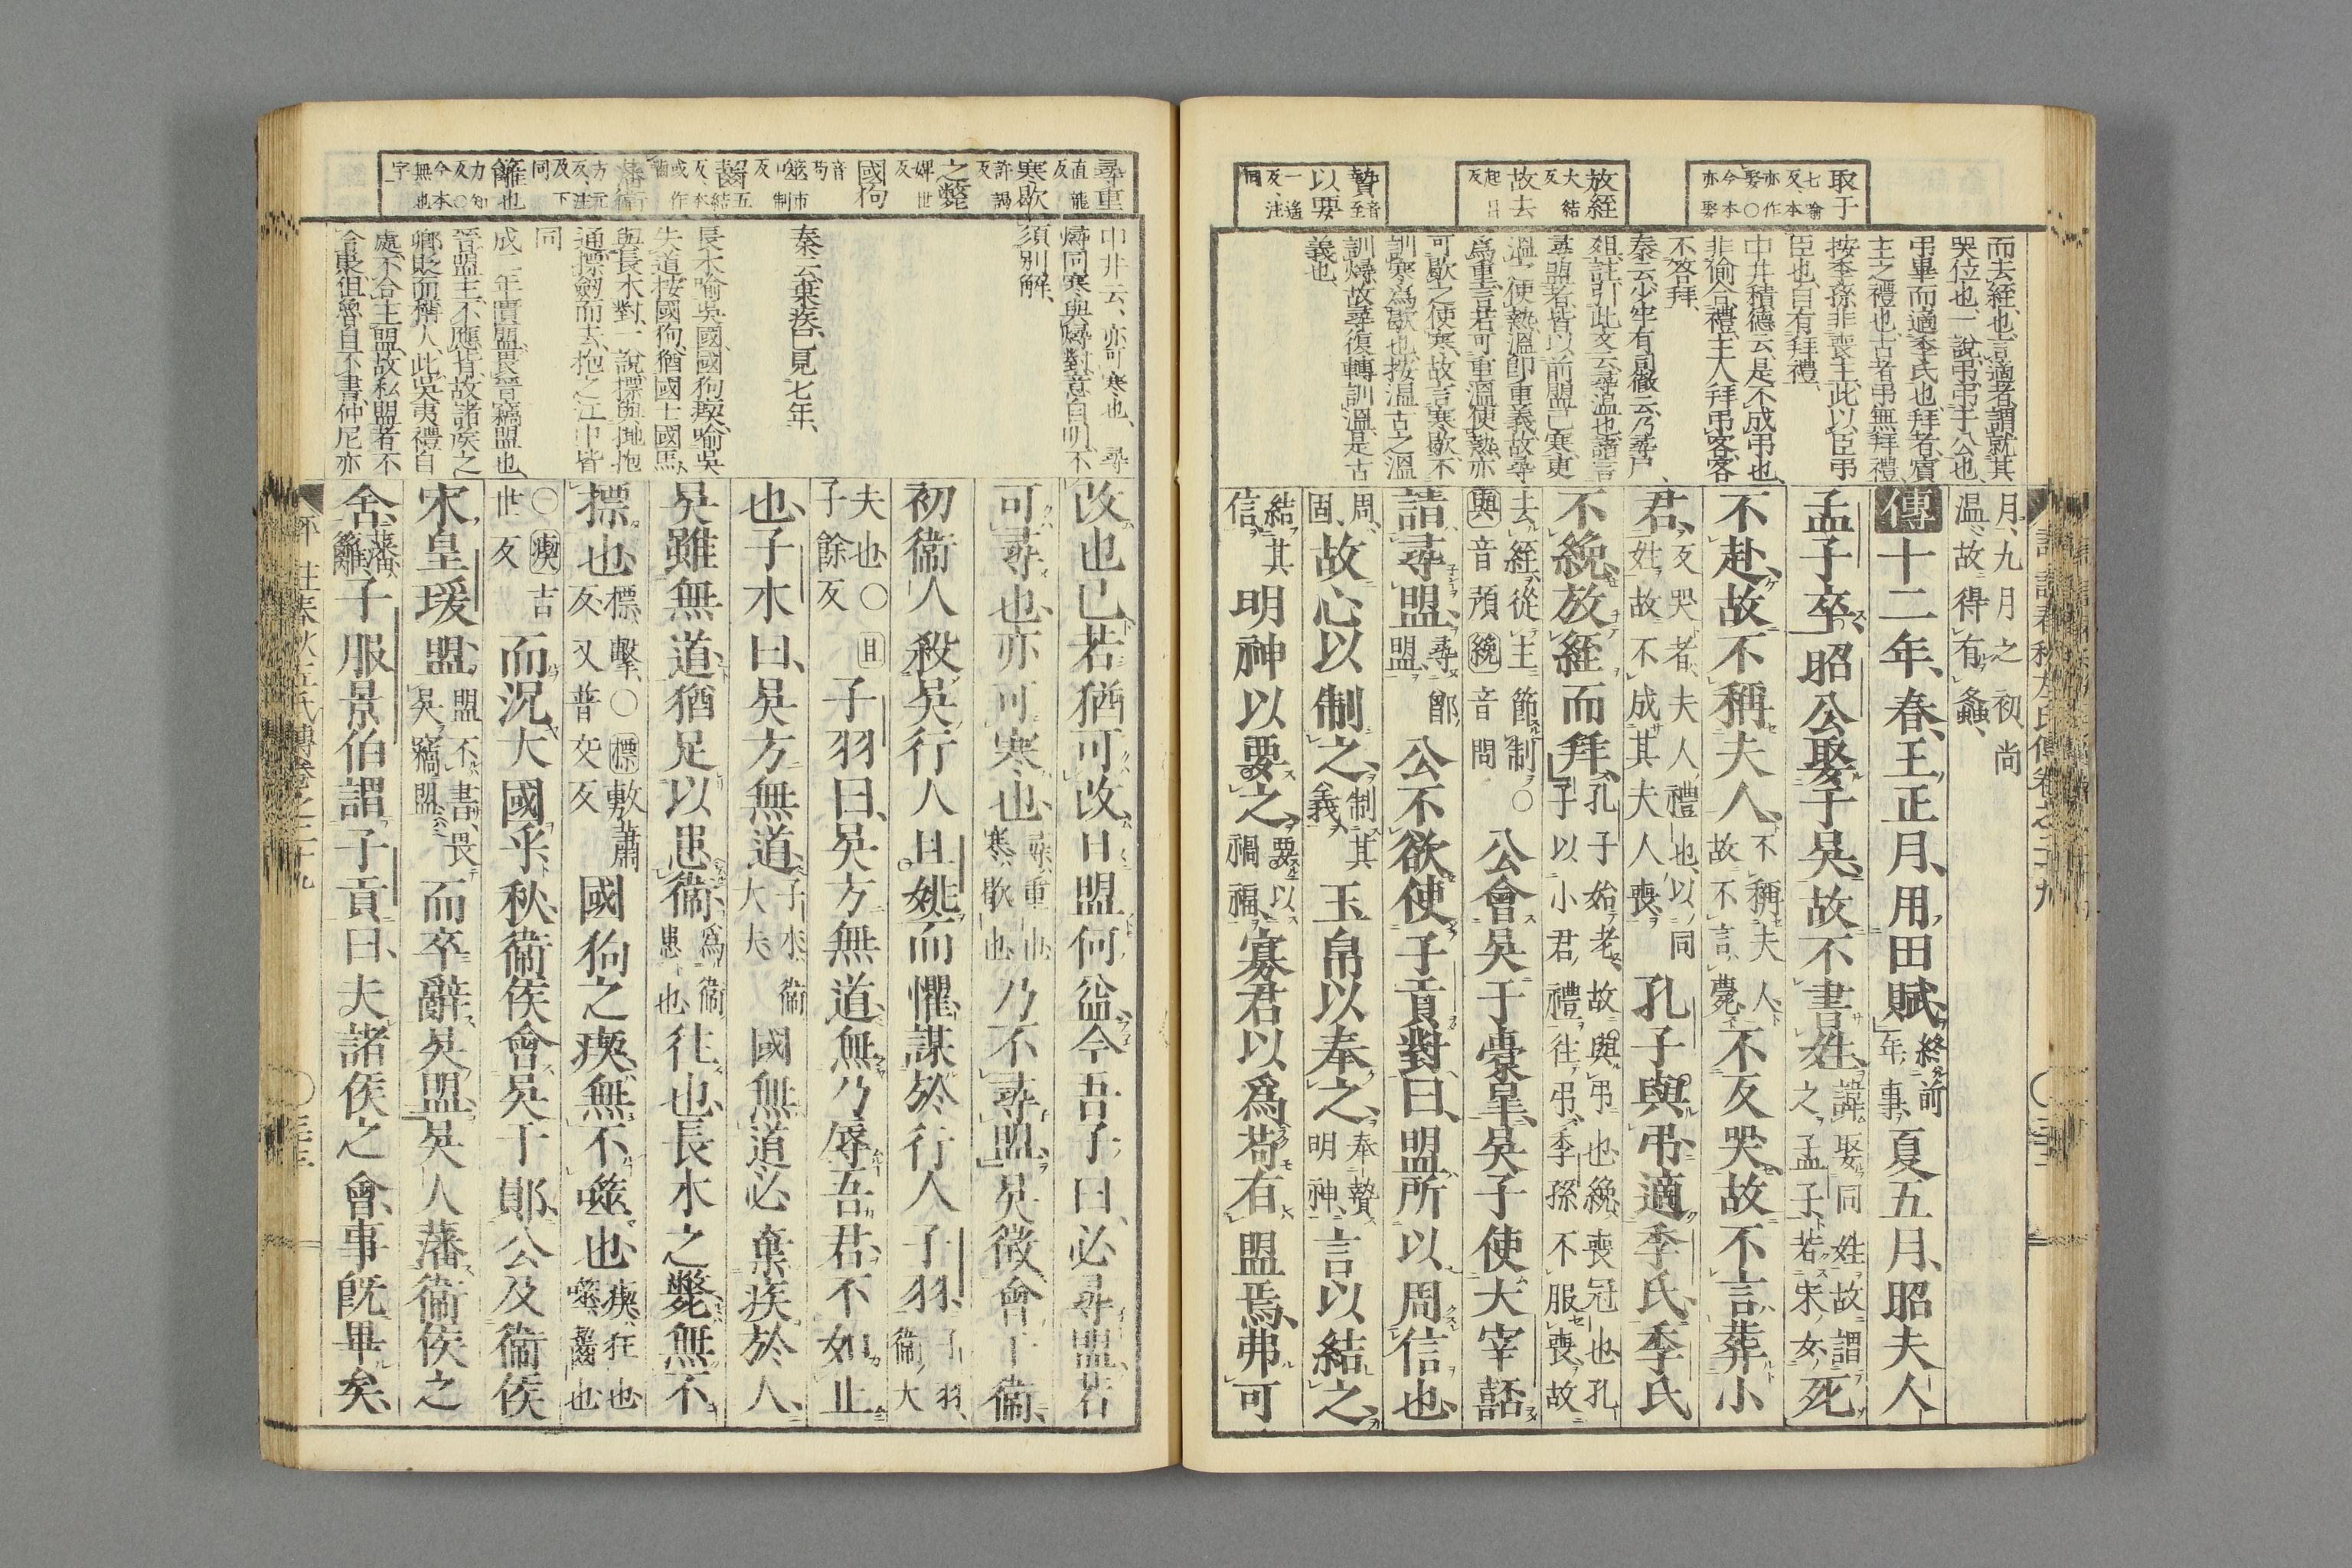 取于七喻反、本亦作娶〇今本亦娶
放絰大結反故去起呂反
以要一遙反、注同
而去絰也、言適者、謂就其
哭位也、一說、弔、弔于公也、
弔畢而適季氏也、拜者、賓
主之禮也、古者弔無拜禮、
按季孫非喪主、此以臣弔
臣也、自有拜禮、
中井積德云、是不成弔也、
非偷合禮、主人拜弔客、客
不答拜、
秦云、少牢有司徹云、乃尋尸
俎、註引此文云、尋温也、諸言
尋盟者、皆以前盟已寒、更
溫之使熱、溫卽重義、故尋
爲重、言若可重溫使熱、亦
可歇之使寒、故言寒歇、不
訓寒爲歇也、按溫古之溫
訓燖、故尋復轉訓溫、是古
義也、
月、九月之初尚
温、故得有螽、
傳十二年、春、王正月、用田賦、終前年事、夏五月、昭夫人
孟子卒、昭公娶于吳、故不書姓、諱娶同姓、故謂之孟子、若宋女、死
不赴、故不稱夫人、不稱夫人、故不言薨、不反哭、故不言葬小
君、反哭者、夫人禮也、以同姓故、不成其夫人喪、孔子與弔、適季氏、季氏
不絻、放絰而拜、孔子始老、故與弔也、絻喪冠也、孔子以小君禮往弔、季孫不服喪、故
去絰、從主節制〇與音預絻音問公會吳于橐皐、吳子使大宰嚭
請尋盟、尋鄫盟、公不欲、使子貢對曰、盟所以周信也、
周、固、故心以制之、制其義、玉帛以奉之、奉贄明神、言以結之、
結其信、明神以要之、要以禍福、寡君以爲苟有盟焉、弗可
尋重直龍反寒歇許謁反之斃婢世反國狗音苟噬市制反齧五結反、本或作齒藩衞方元反、注及下同籬也力知反〇今本無也字
中井云、亦可寒也、尋
燖同、寒與燖對、意自明、不
須別解、
秦云、棄疾、已見七年、
長木喻吳國、國狗瘈、喻吳
失道、按國狗、猶國士國馬、
與長木對、一說、摽與抛抱
通、摽劒而去、抱之江中皆
同
成二年、賈盟畏晉竊盟也、
晉盟主不應背、故諸侯之
卿貶而稱人、此吳夷禮自
處、不合主盟、故私盟者不
合貶、但魯自不書、仲尼亦
改也已、若猶可改、日盟何益、今吾子曰、必尋盟、若
可尋也、亦可寒也、尋、重也、寒、歇也、乃不尋盟、吳徵會于衞、
初衞人殺吳行人且姚而懼、謀於行人子羽、子羽、衞大
夫也〇且子餘反子羽曰、吳方無道、無乃辱吾君、不如止
也、子木曰、吳方無道、子木、衞大夫、國無道、必棄疾於人、
吳雖無道、猶足以患衞、爲衞患也、往也、長木之斃、無不
摽也、摽、擊、〇摽敷蕭反、又普交反國狗之瘈、無不噬也、瘈、狂也、噬、齧也
〇瘈吉世反而況大國乎、秋、衞侯會吳于鄖、公及衞侯
宋皇瑗盟、盟不書、畏吳、竊盟、而卒辭吳盟、吳人藩衞侯之
舍、藩、籬、子服景伯謂子貢曰、夫諸侯之會、事旣畢矣、